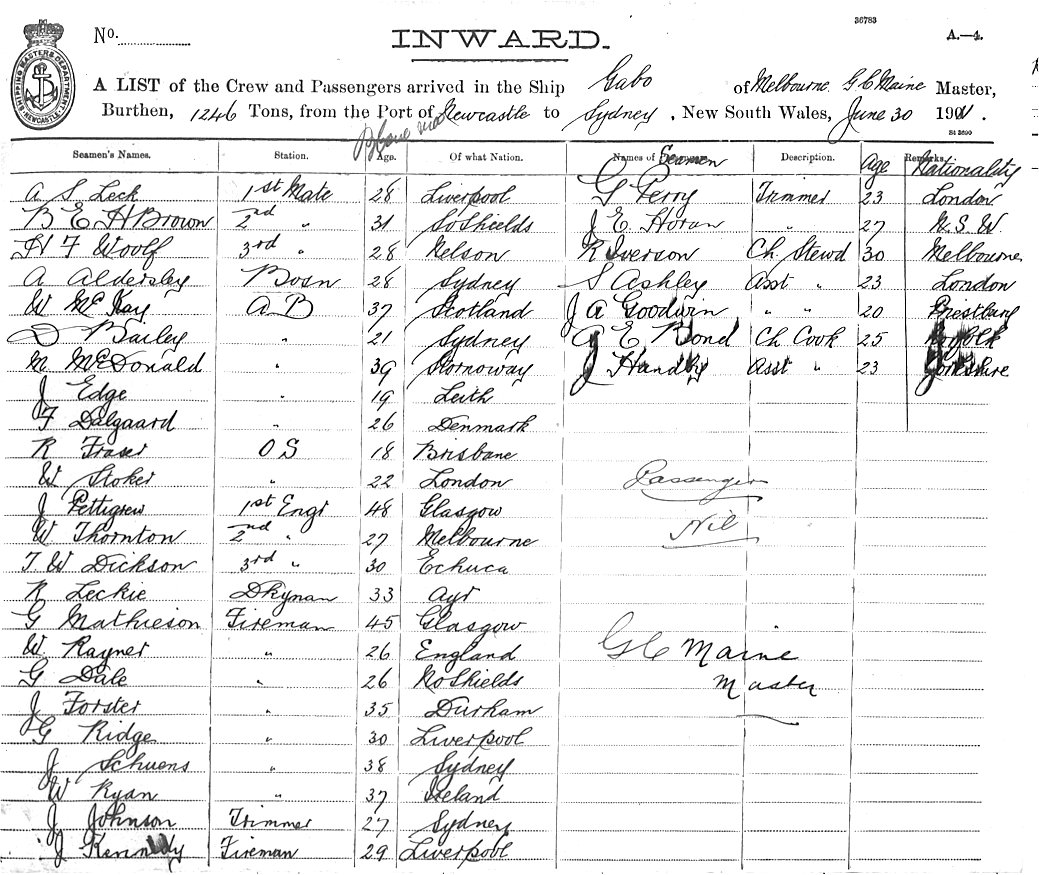 36783
No.
INWARD.
A.—4.
SHIPPING MASTER'S DEPARTMENT NEWCASTLE
A LIST of the Crew and Passengers arrived in the Ship Gabo of Melbourne G. C Maine Master,
Burthen, 1246 Tons, from the Port of Newcastle to Sydney, New South Wales, June 30 1901.
St 3690
Seamen's Names. Station. Age. Of what Nation. Names of Seamen Description. Age Remarks. Nationality
A S Leck 1st Mate 28 Liverpool G Perry Trimmer 23 London
B E H Brown 2nd " 31 So Shields J E Horan " 27 N. S. W.
H F Woolf 3rd " 28 Nelson R Iverson Ch Stewd 30 Melbourne
A Aldersley Bosn 28 Sydney S Ashley Asst " 23 London
W McKay A B 37 Scotland J A Goodwin " " 20 Prestbury
D Bailey " 21 Sydney A E Bond Ch Cook 25 Norfolk
M McDonald " 39 Stornoway J Handby Asst " 23 Yorkshire
J Edge " 19 Leith
F Dalgaard " 26 Denmark
R Fraser O S 18 Brisbane
W Stoker " 22 London Passengers
J Pettigrew 1st Engr 48 Glasgow Nil
W Thornton 2nd " 27 Melbourne
T W Dickson 3rd " 30 Echuca
R Leckie Dkyman 33 Ayr
G Mathieson Fireman 45 Glasgow
W. Rayner " 26 England G C Maine
G Dale " 26 No Shields Master
J Forster " 35 Durham
G Ridge " 30 Liverpool
J Schuens " 38 Sydney
W Ryan " 37 Ireland
J Johnson Trimmer 27 Sydney
J Kennedy Fireman 29 Liverpool